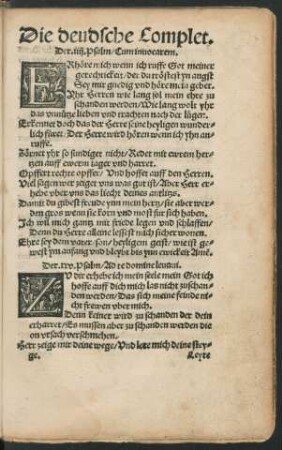 Die deudsche Complet.
Der .iiij. Psalm / Cum invocarem.
ERhöre mich wenn ich ruffe Got meiner
gerechtickeit / der du tröstest yn angst
Sey mir gnedig und höre mein gebet.
Yhr Herren wie lang sol mein ehre zu
schanden werden / Wie lang wolt yhr
das unnütze lieben und trachten nach der lügen.
Erkennet doch das der Herre seine heyligen wunder-
lich füret. Der Herre wird hören wenn ich yhn an-
ruffe.
Zörnet yhr so sundiget nicht / Redet mit ewrem her-
tzen auff ewerm lager und harret.
Opffert rechte opffer / Und hoffet auff den Herren.
Viel sagen wer zeiget uns was gut ist / Aber Herr er-
hebe uber uns das liecht deines antlitzs.
Damit du gibest freude ynn mein hertz / sie aber wer-
den gros wenn sie korn und most fur sich haben.
Ich wil mich gantz mit friede legen und schlaffen /
Denn du Herre alleine lessest mich sicher wonen.
Ehre sey dem vater / son / heyligem geist / wie ist ge-
west yn anfang und bleybt bis ynn ewickeit Ame.
Der .xxv. Psalm / Ad te domine levavi.
ZU dir erhebe ich mein seele mein Got ich
hoffe auff dich mich las nicht zuschan-
den werden / Das sich meine feinde nicht
frewen uber mich.
Denn keiner wird zu schanden der dein
erharret / Es mussen aber zu schanden werden die
on ursach verschmehen.
Herr zeige mir deine wege / Und lere mich deine stey-
ge. Leyte